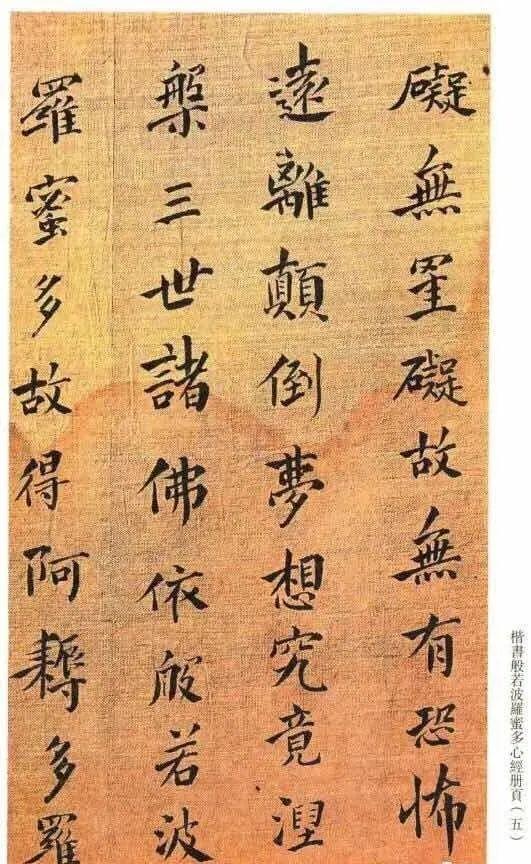 礙無罣礙故無有恐怖
遠離顛倒夢想究竟涅
槃三世諸佛依般若波
羅蜜多故得阿耨多羅
楷書般若波羅蜜多心經册頁（五）